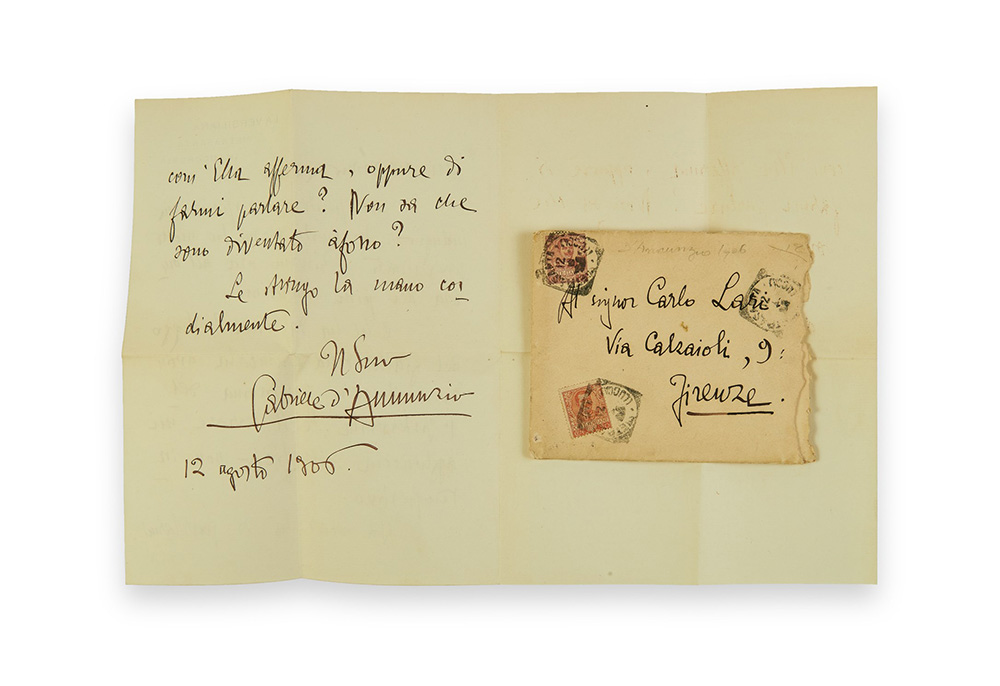 com' Ella afferma, oppure di
farmi parlare? Non sa che
sono diventato àfono?
Le stringo la mano cor-
dialmente.
Il Suo
Gabriele d'Annunzio
12 agosto 1906.
Annunzio 1906
Al signor Carlo Lari
Via Calzaioli, 9:
Firenze.